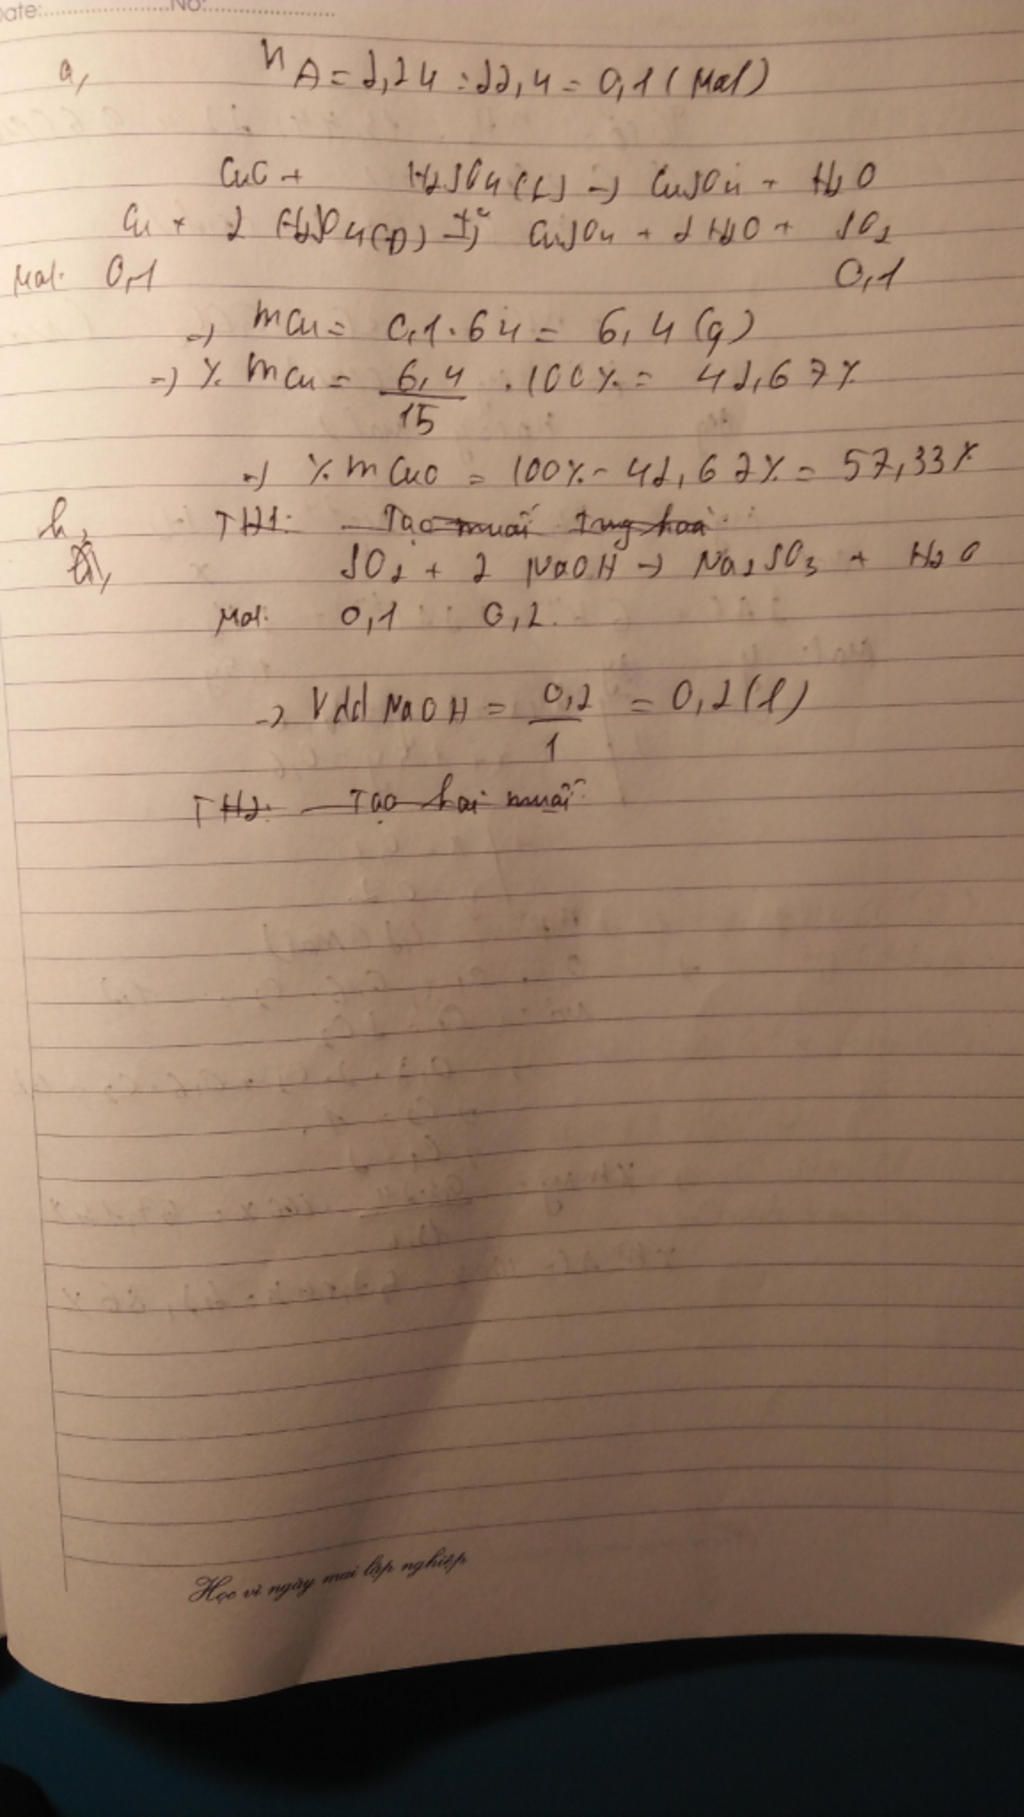 Date:.....................No:.....................
a, nA = 2,24 : 22,4 = 0,1 (mol)
CuO + H2SO4(L) → CuSO4 + H2O
Cu + 2 H2SO4(Đ) t°→ CuSO4 + 2 H2O + SO2
Mol: 0,1 0,1
=) mCu = 0,1 . 64 = 6,4 (g)
=) % mCu = 6,4/15 . 100% = 42,67%
=) % mCuO = 100% - 42,67% = 57,33%
b, TH1: Tạo muối trung hoà
SO2 + 2 NaOH → Na2SO3 + H2O
Mol: 0,1 0,2
→ Vdd NaOH = 0,2/1 = 0,2 (l)
TH2: Tạo hai muối
Học vì ngày mai lập nghiệp